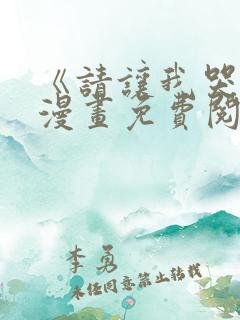 《請讓我哭
漫畫免費閱
李勇
未經同意禁止轉載